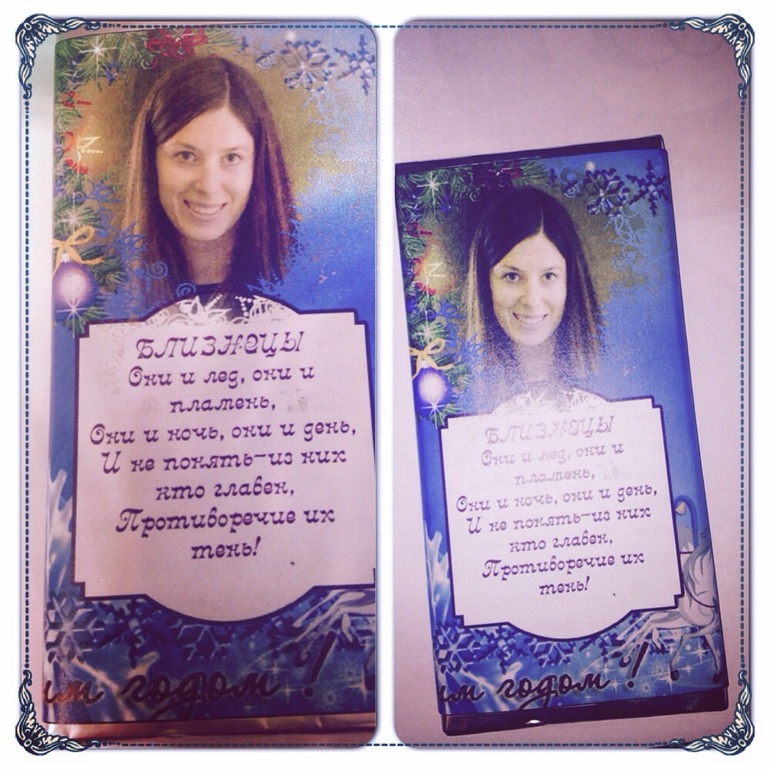 БЛИЗНЕЦЫ
Они и лед, они и
пламень,
Они и ночь, они и день,
И не понять-из них
кто главен,
Противоречие их
тень!
им годом!
БЛИЗНЕЦЫ
Они и лед, они и
пламень,
Они и ночь, они и день,
И не понять-из них
кто главен,
Противоречие их
тень!
им годом!